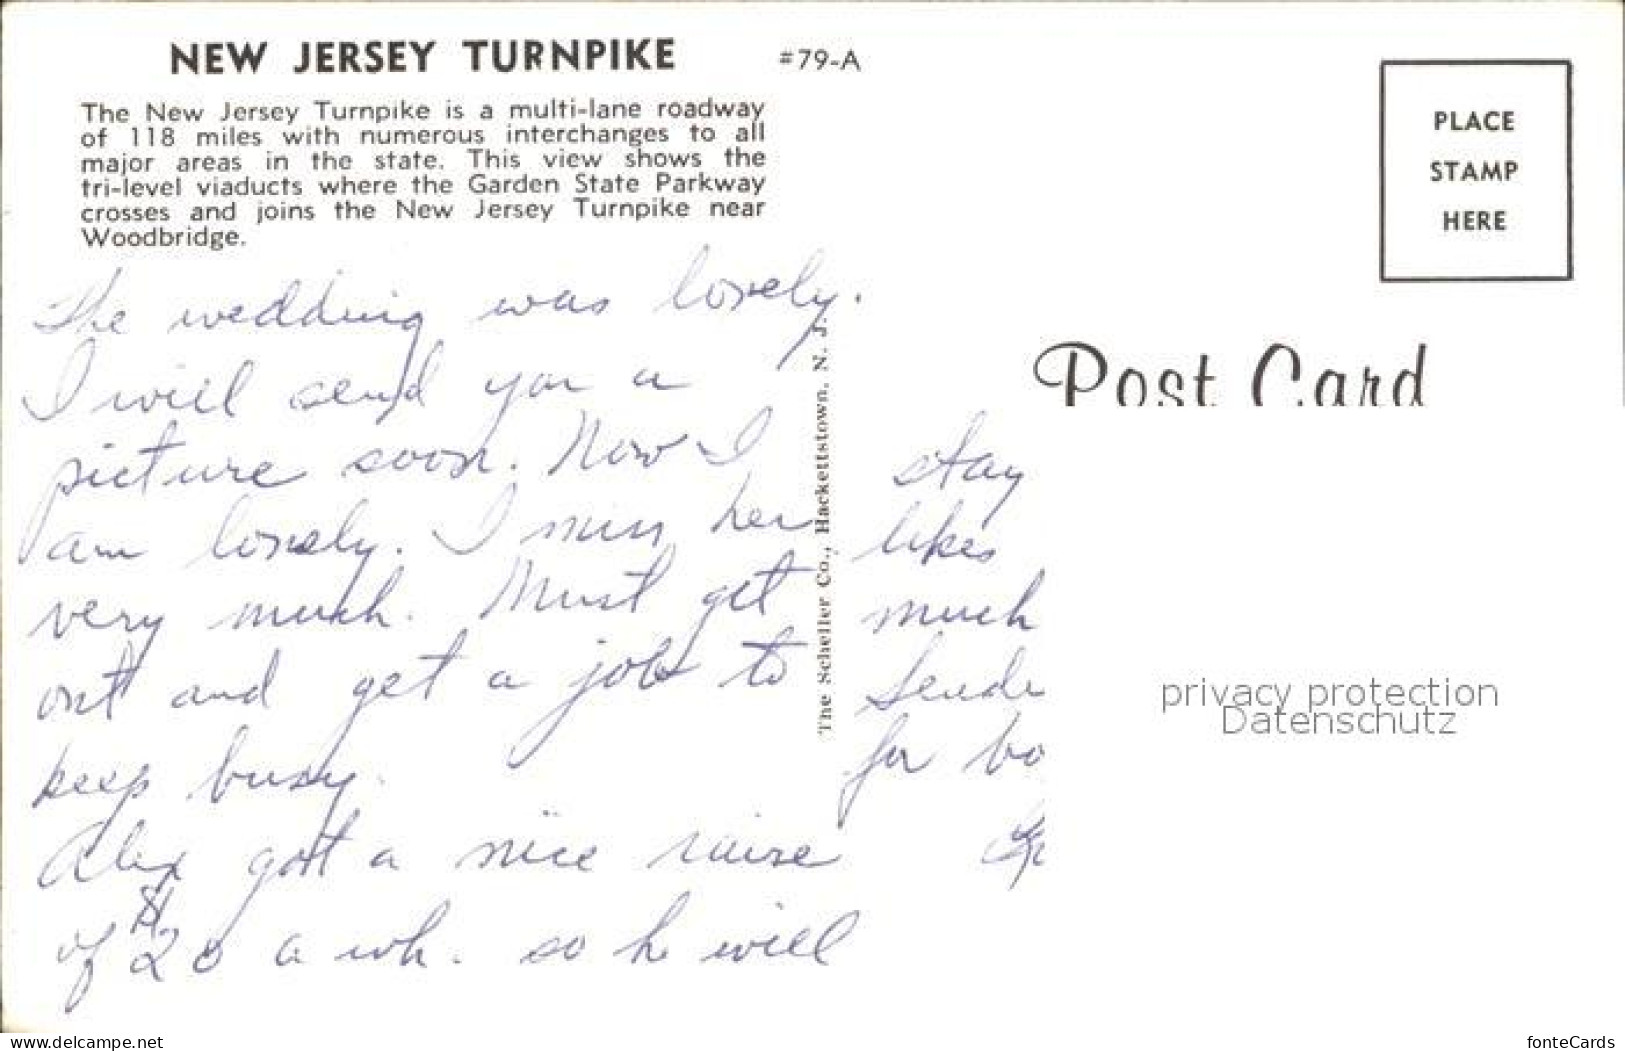 NEW JERSEY TURNPIKE #79-A
The New Jersey Turnpike is a multi-lane roadway
of 118 miles with numerous interchanges to all
major areas in the state. This view shows the
tri-level viaducts where the Garden State Parkway
crosses and joins the New Jersey Turnpike near
Woodbridge.
The wedding was lovely.
I will send you a
picture soon. Now I
am lonely. I miss her
very much. Must get
out and get a job to
keep busy.
Alex got a nice raise
of $20 a wk. so he will
The Scheller Co., Hackettstown, N. J.
PLACE
STAMP
HERE
Post Card
stay
likes
much
for
privacy protection
Datenschutz
www.delcampe.net
fonteCards